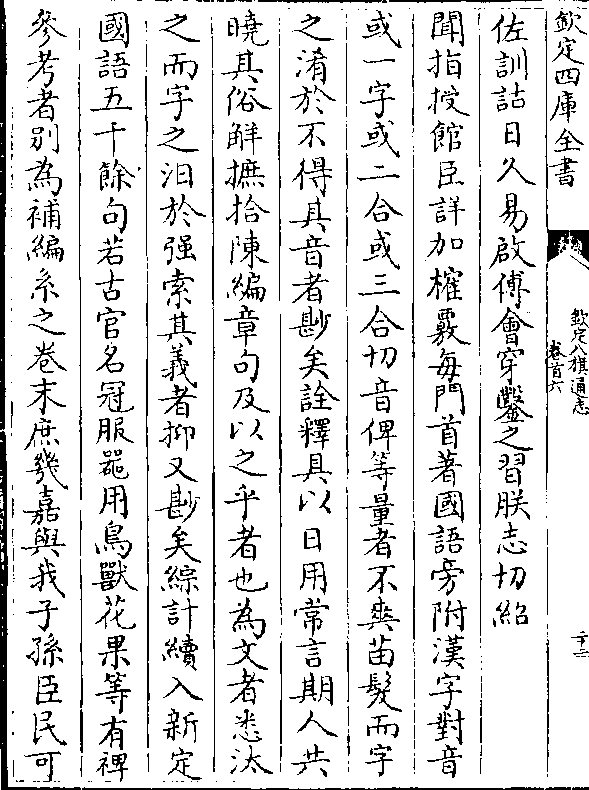 欽定四庫全書
欽定八旗通志
卷首六
二十二
佐訓詁日久易啟傅會穿鑿之習朕志切紹
聞指授館臣詳加榷覈每門首著國語旁附漢字對音
或一字或二合或三合切音俾等量者不爽苗髮而字
之淆於不得其音者尠矣詮釋具以日用常言期人共
曉其俗觧摭拾陳編章句及以之乎者也為文者悉汰
之而字之汩於强索其義者抑又尠矣綜計續入新定
國語五千餘句若古官名冠服噐用鳥獸花果等有裨
參考者别為補編系之卷末庶幾嘉與我子孫臣民可